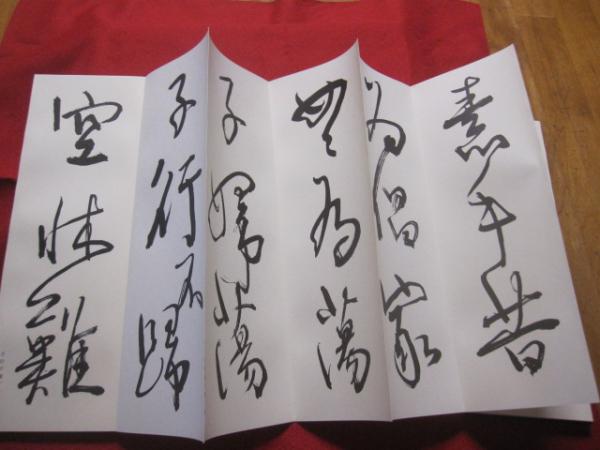 素手昔
為倡家
女今為蕩
子婦蕩
子行不歸
空牀難